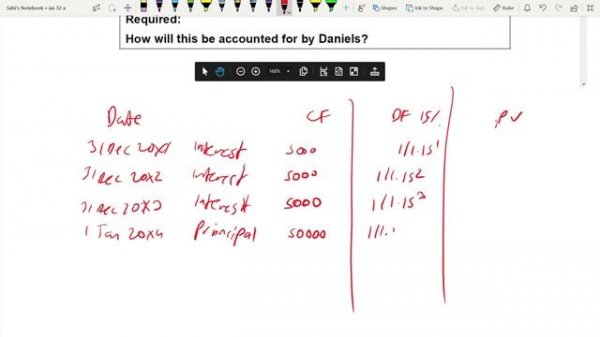 Sabi's Notebook » ias 32 a
Shapes Ink to Shape Ink to Text
Required:
How will this be accounted for by Daniels?
168%
Date CF DF 15% PV
31 Dec 20X1 Interest 5000 1/1.15¹
31 Dec 20X2 Interest 5000 1/1.15²
31 Dec 20X3 Interest 5000 1/1.15³
1 Jan 20X4 Principal 50000 1/1.